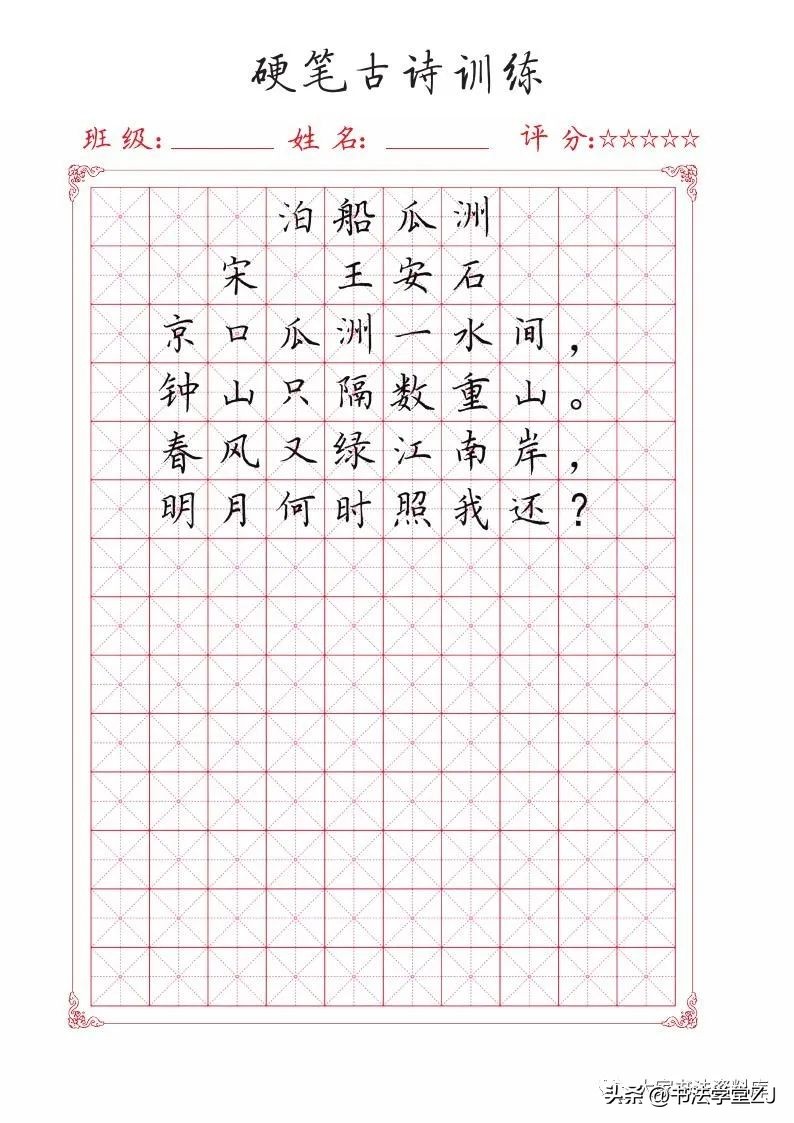 硬笔古诗训练
班级: 姓名: 评分:☆☆☆☆☆
泊船瓜洲
宋 王安石
京口瓜洲一水间，
钟山只隔数重山。
春风又绿江南岸，
明月何时照我还？
头条@书法学堂ZJ